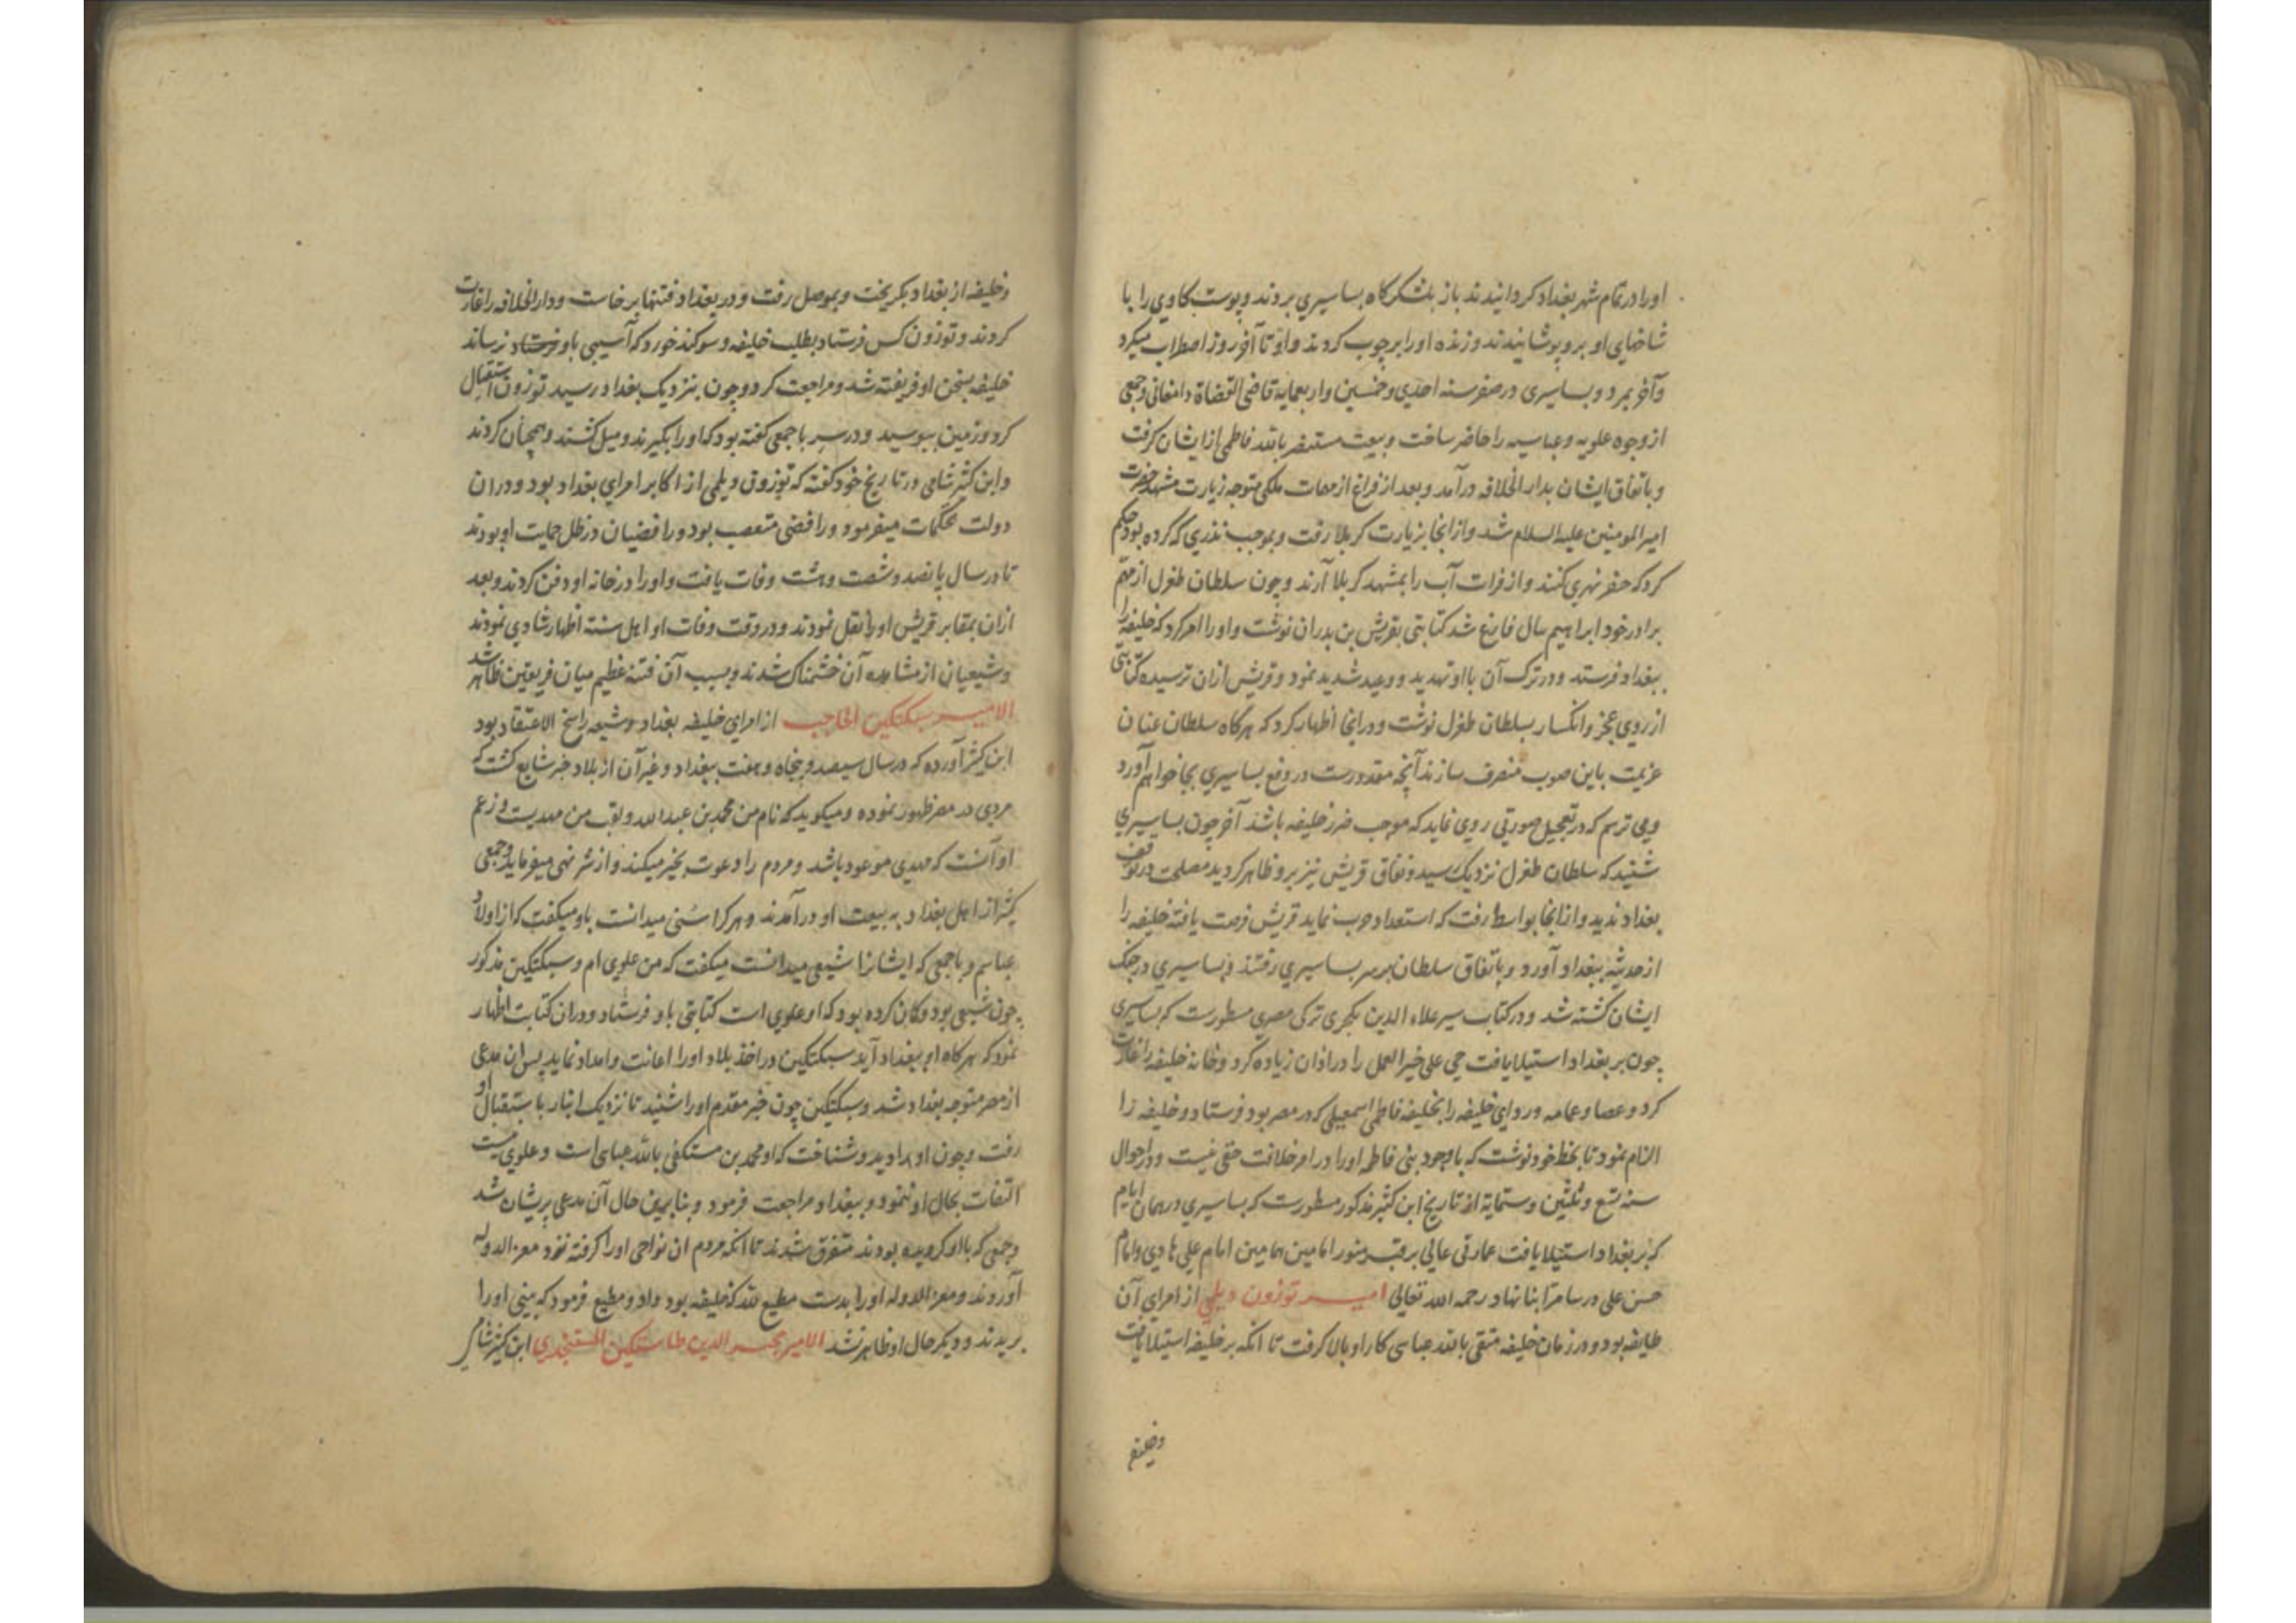 اورا در تمام شهر بغداد کردانیدند باز بلشکرکاه بساسیری بردند و پوست کاوی را با
شاخهای او برو پوشانیدند و زنده اورا بر چوب کردند و او تا آخر روز اضطراب میکرد
و آخر بمرد و بساسیری در صفر سنه احدی و خمسین و اربعمایه قاضی القضاة دامغانی و جمعی
از وجوه علویه و عباسیه را حاضر ساخت و بیعت مستنصر بالله فاطمی از ایشان کرفت
و باتفاق ایشان بدار الخلافه در آمد و بعد از فراغ از مهمات ملکی متوجه زیارت مشهد حضرت
امیر المومنین علیه السلام شد و از انجا بزیارت کربلا رفت و بموجب نذری که کرده بود حکم
کرد که حفر نهری کنند و از فرات آب را بمشهد کربلا آرند و چون سلطان طغرل از مهم
برادر خود ابراهیم سال فارغ شد کتابتی بقریش بن بدران نوشت و اورا امر کرد که خلیفه را
ببغداد فرستد و در ترک آن با او تهدید و وعید شدید نمود و قریش ازان ترسیده کتابتی
از روی عجز و انکسار بسلطان طغرل نوشت و درانجا اظهار کرد که هرکاه سلطان عنان
عزیمت باین صوب منصرف سازند آنچه مقدورست در دفع بساسیری بجا خواهم آورد
و می ترسم که در تعجیل صورتی روی نماید که موجب ضرر خلیفه باشد آخر چون بساسیری
شنید که سلطان طغرل نزدیک رسید و نفاق قریش نیز برو ظاهر کردید مصلحت در توقف
بغداد ندید و ازانجا بواسط رفت که استعداد حرب نماید قریش فرصت یافته خلیفه را
از حدیثه ببغداد آورد و باتفاق سلطان بر سر بساسیری رفتند و بساسیری در جنک
ایشان کشته شد و در کتاب سیر علاء الدین بکجری ترکی مصری مسطورست که بساسیری
چون بر بغداد استیلا یافت حی علی خیر العمل را در اذان زیاده کرد و خانه خلیفه را غارت
کرد و عصا و عمامه و ردای خلیفه را بخلیفه فاطمی اسمعیلی که در مصر بود فرستاد و خلیفه را
الزام نمود تا بخط خود نوشت که با وجود بنی فاطمه اورا در امر خلافت حقی نیست و در احوال
سنه تسع و ثلثین و ستمایة از تاریخ ابن کثیر مذکور مسطورست که بساسیری در همان ایام
که بر بغداد استیلا یافت عمارتی عالی بر قبه منور امامین همامین امام علی هادی و امام
حسن علی در سامرا بنا نهاد رحمه الله تعالی امیر توزون دیلمی از امرای آن
طایفه بود و در زمان خلیفه متقی بالله عباسی کار او بالا کرفت تا انکه بر خلیفه استیلا یافت
و خلیفه
و خلیفه از بغداد بکریخت و بموصل رفت و در بغداد فتنها برخاست و دار الخلافه را غارت
کردند و توزون کس فرستاد بطلب خلیفه و سوکند خورد که آسیبی باو نرساند
خلیفه بسخن او فریفته شد و مراجعت کرد و چون بنزدیک بغداد رسید توزون استقبال
کرد و زمین ببوسید و در سر با جمعی کفته بود که اورا بکیرند و میل کشند و همچنان کردند
و ابن کثیر شامی در تاریخ خود کفته که توزون دیلمی از اکابر امرای بغداد بود و دران
دولت تحکمات میفرمود و رافضی متعصب بود و رافضیان در ظل حمایت او بودند
تا در سال پانصد و شصت و هشت وفات یافت و اورا در خانه او دفن کردند و بعد
ازان بمقابر قریش اورا نقل نمودند و در وقت وفات او اهل سنت اظهار شادی نمودند
و شیعیان از مشاهده آن خشمناک شدند و بسبب آن فتنه عظیم میان فریقین ظاهر شد
الامیر سبکتکین الحاجب از امرای خلیفه بغداد و شیعه راسخ الاعتقاد بود
ابن کثیر آورده که در سال سیصد و پنجاه و هفت ببغداد و غیر آن از بلاد خبر شایع کشت که
مردی در مصر ظهور نموده و میکوید که نام من محمد بن عبد الله و لقب من مهدیست و زعم
او آنست که مهدی موعود باشد و مردم را دعوت بخیر میکند و از شر نهی میفرماید و جمعی
کثیر از اهل بغداد به بیعت او در آمدند و هر کرا سنی میدانست باو میکفت که از اولاد
عباسم و با جمعی که ایشانرا شیعی میدانست میکفت که من علوی ام و سبکتکین مذکور
چون شیعی بود و کان کرده بود که او علوی است کتابتی باو فرستاد و دران کتابت اظهار
نمود که هرکاه او ببغداد آید سبکتکین در اخذ بلاد اورا اعانت و امداد نماید پس ان مدعی
از مصر متوجه بغداد شد و سبکتکین چون خبر مقدم اورا شنید تا نزدیک انبار باستقبال او
رفت و چون اورا دید و شناخت که او محمد بن مستکفی بالله عباسی است و علوی نیست
التفات بحال او ننمود و ببغداد مراجعت فرمود و بنابرین حال آن مدعی پریشان شد
و جمعی که باو کرویده بودند متفرق شدند تا انکه مردم ان نواحی اورا کرفته نزد معز الدوله
آوردند و معز الدوله اورا بدست مطیع لله که خلیفه بود داد و مطیع فرمود که بینی اورا
بریدند و دیکر حال او ظاهر نشد الامیر مجیر الدین طاشتکین المستنجدی ابن کثیر شامی